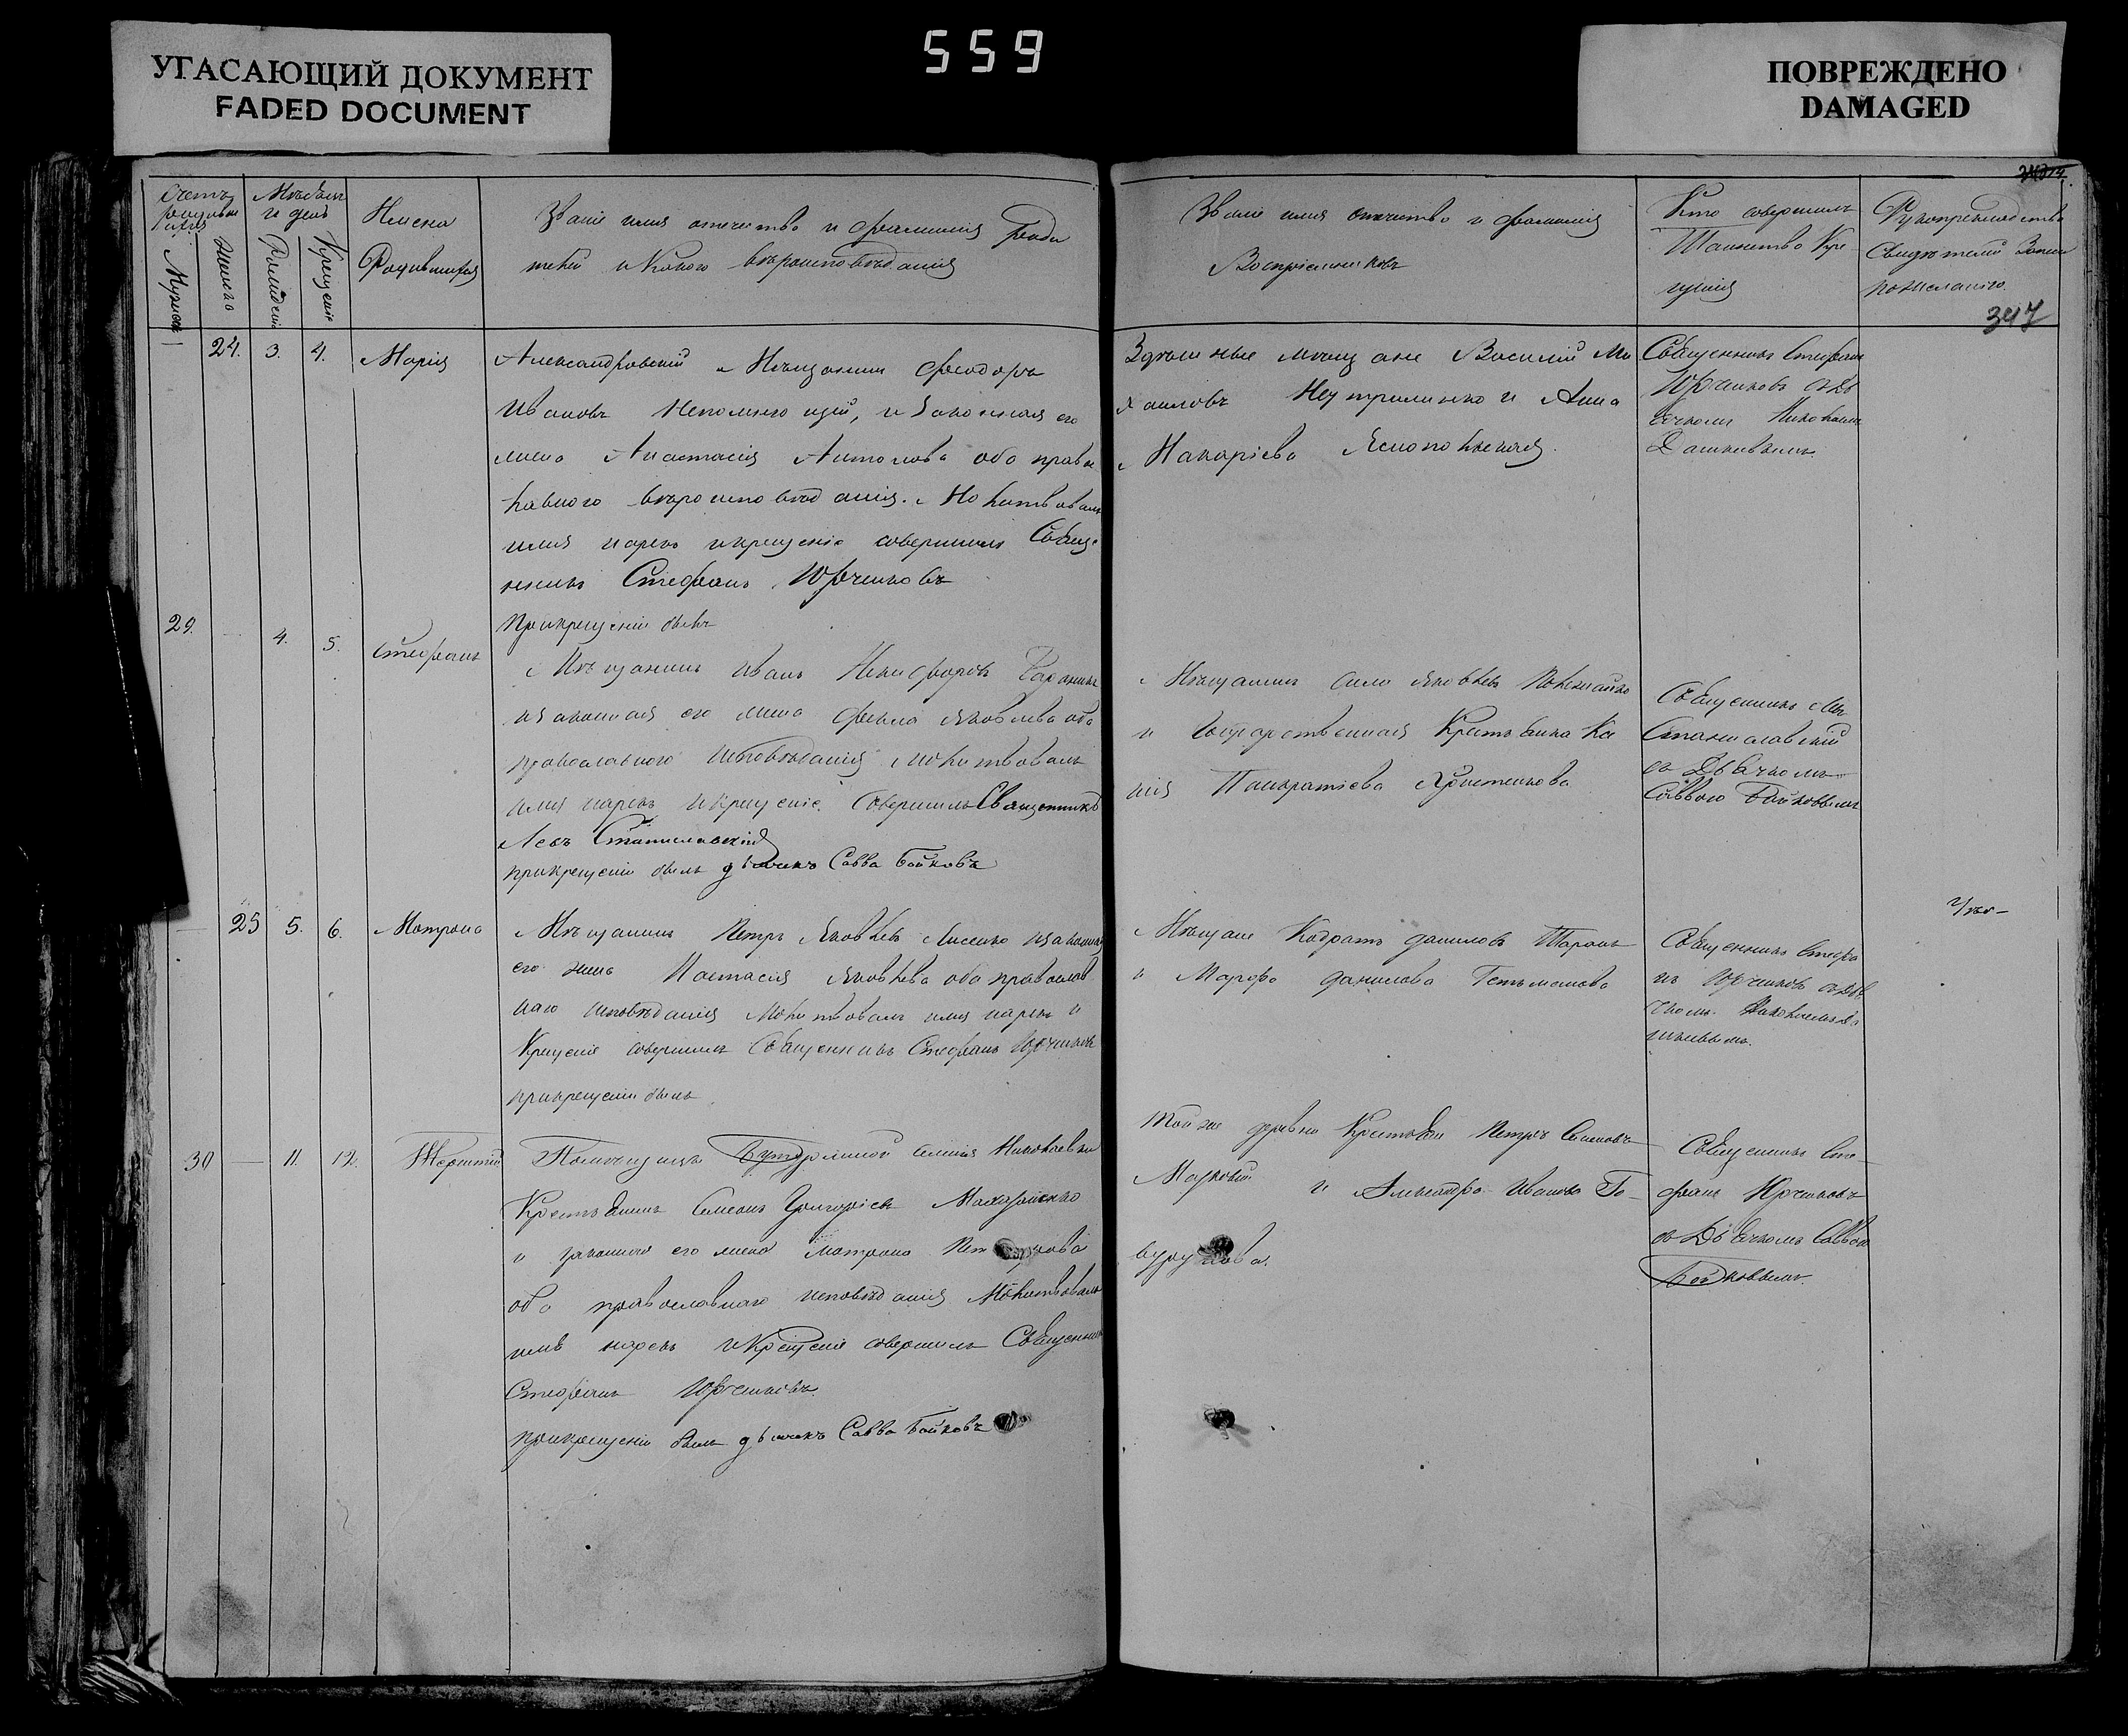 УГАСАЮЩИЙ ДОКУМЕНТ
FADED DOCUMENT
559
ПОВРЕЖДЕНО
DAMAGED
347
Счетъ
Мужеск
Женска
и день
Рожденія
Крещенія
Имена
Родившихся
Званіе имя отечество и фамилія роди
телей и какого вѣроисповѣданія
Званіе имя отечество и фамилія
Воспріемниковъ
Кто совершилъ
Таинство Кре
щенія
Рукоприкладство
Свидѣтелей
по желанію.
24. 3. 4. Марія
Александровскій Мѣщанинъ Феодоръ
Ивановъ и законная его
жена Анастасія Антонова оба правос
лавнаго вѣроисповѣданія. Молитвовалъ
имя нарекъ и крещеніе совершилъ Свяще
нникъ Стефанъ Юрченковъ
при крещеніи былъ
Здѣшніе мѣщане Василій Ми
хаиловъ и Анна
Макаріева
Священникъ Стефанъ
Юрченковъ съ Дь
ячкомъ Николаемъ
Дашкевымъ
29. 4. 5. Стефанъ
Мѣщанинъ Иванъ Никифоровъ
и законная его жена Фекла Яковлева оба
православнаго исповѣданія молитвовалъ
имя нарекъ и крещеніе совершилъ Священникъ
Левъ Станиславскій
при крещеніи былъ дьячикъ Савва Байковъ
Мѣщанинъ Сила Яковлевъ
и Государственная Крестьянка Ксе
нія Панкратіева
Священникъ Левъ
Станиславскій
съ Дьячкомъ
Саввою Байковымъ
25 5. 6. Матрона
Мѣщанинъ Петръ Яковлевъ Лисенко и законная
его жена Настасія Яковлева оба православ
наго исповѣданія Молитвовалъ имя нарекъ и
Крещеніе совершилъ Священникъ Стефанъ Юрченковъ
при крещеніи былъ
Мѣщане Кодратъ Даниловъ Таранъ
и Марфа Данилова Гетьманова
Священникъ Стефа
нъ Юрченковъ съ Дья
чкомъ Николаемъ Да
шкевымъ.
30 11. 12. Терентій
Помѣщицы Николаевны
Крестьянинъ Симеонъ Григоріевъ
и законная его жена Матрона
оба православнаго исповѣданія Молитвовалъ
имя нарекъ и Крещеніе совершилъ Священникъ
Стефанъ Юрченковъ.
при крещеніи былъ дьячикъ Савва Байковъ
Той же деревни Крестьяне Петръ Семеновъ
и Александра Иванова
Священникъ Сте
фанъ Юрченковъ
съ Дьячкомъ Саввою
Байковымъ.